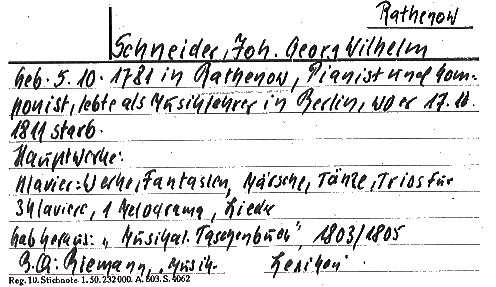 Rathenow
Schneider, Joh. Georg Wilhelm
Geb. 5. 10. 1781 in Rathenow, Pianist und Kom-
ponist, lebte als Musiklehrer in Berlin, wo er 17. 10.
1811 starb.
Hauptwerke:
Klavier: Werke, Fantasien, Märsche, Tänze, Trios für
3 Klaviere, 1 Melodrama, Lieder
Gab heraus: „Musikal. Taschenbuch", 1803/1805
Riemann, „Musik- Lexikon"
Reg. 10. Stichnote. 1. 50. 232000. A. 603. S. 4062